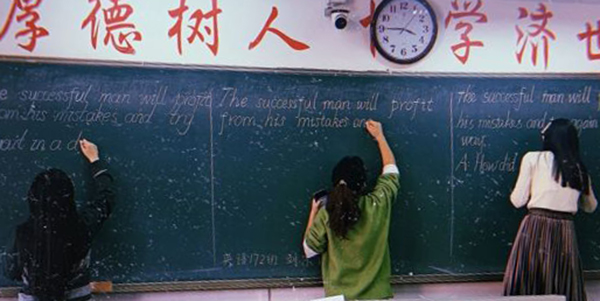 厚德树人 学济世
successful man will profit
his mistakes and try
in a d
The successful man will profit
from his mistakes an
The successful man will
his mistakes and again
way.
A: How did
英语172班